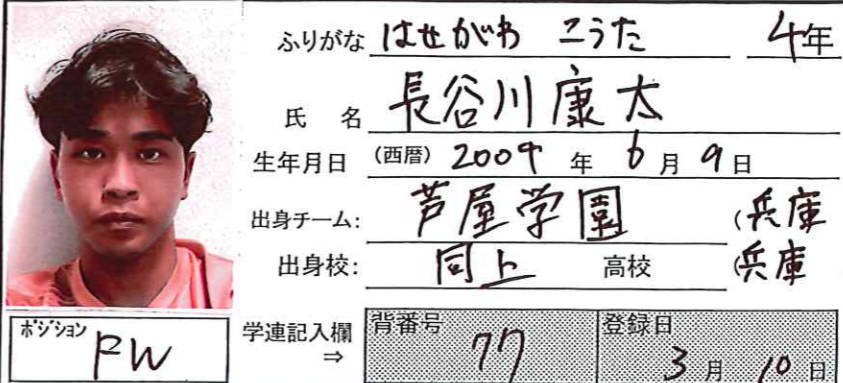 ふりがな はせがわ こうた 4年
氏 名 長谷川康太
生年月日 (西暦) 2004 年 6 月 9 日
出身チーム: 芦屋学園 (兵庫
出身校: 同上 高校 (兵庫
ポジション FW
学連記入欄 ⇒ 背番号 77 登録日 3 月 10 日